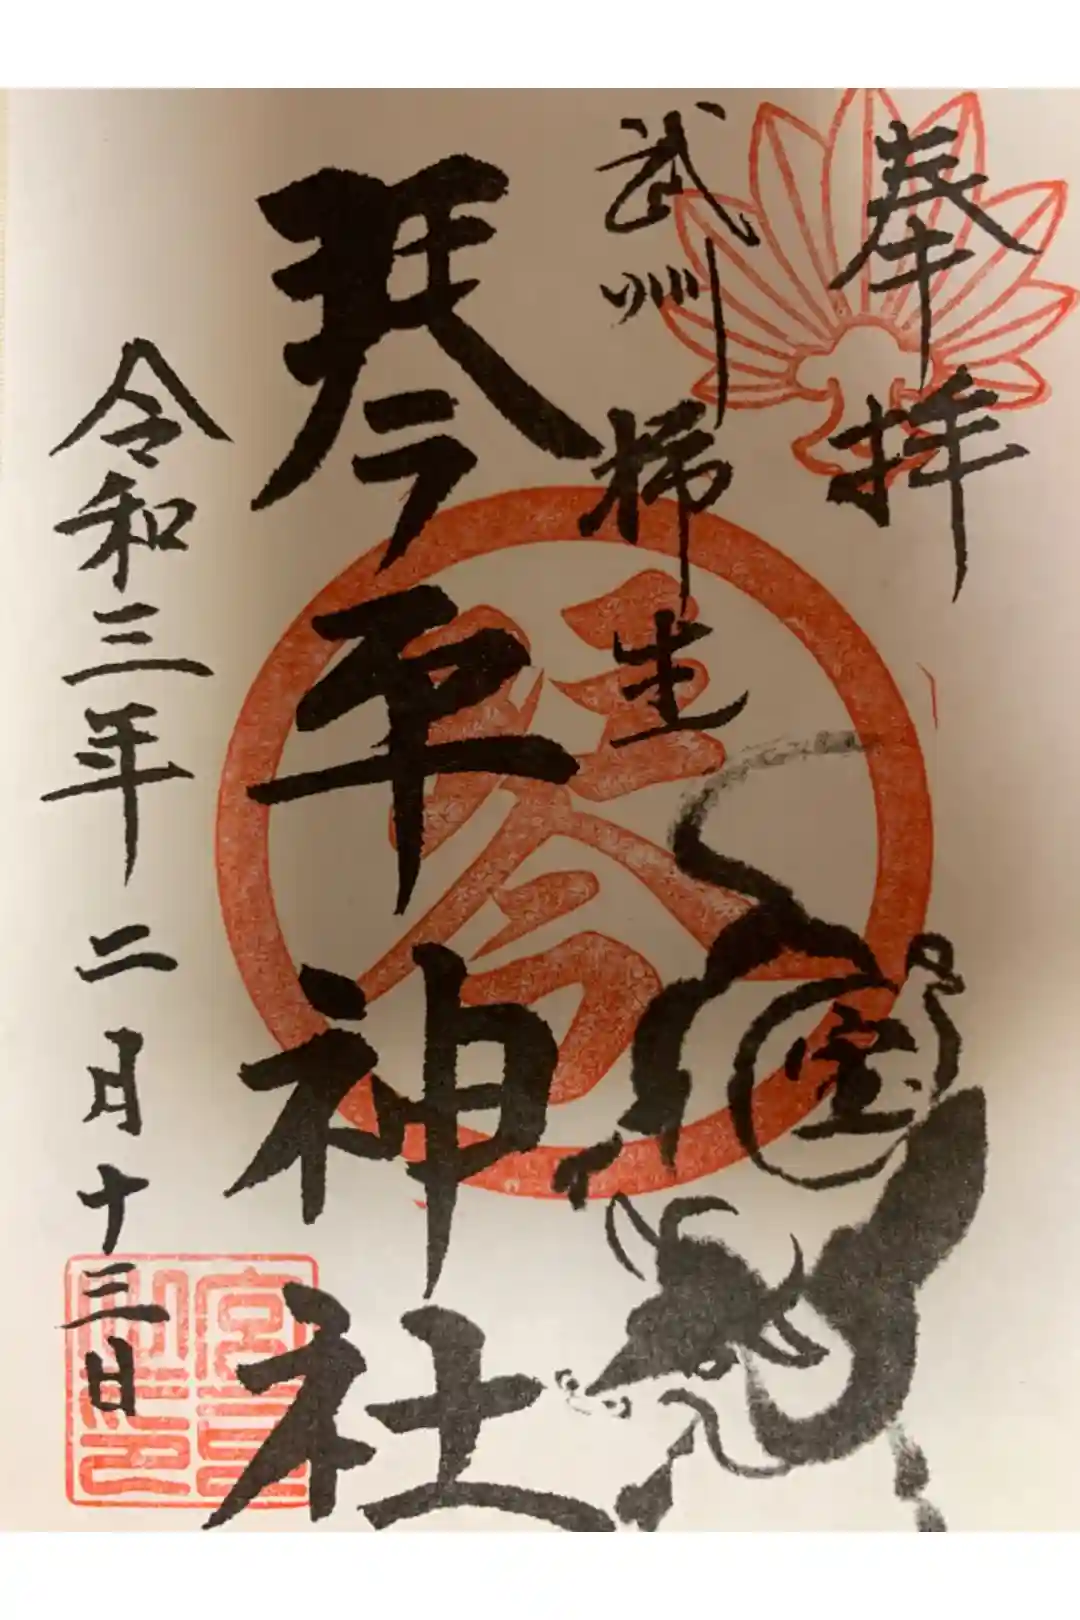 奉拝
武州柿生
琴平神社
令和三年二月十三日
宝
琴